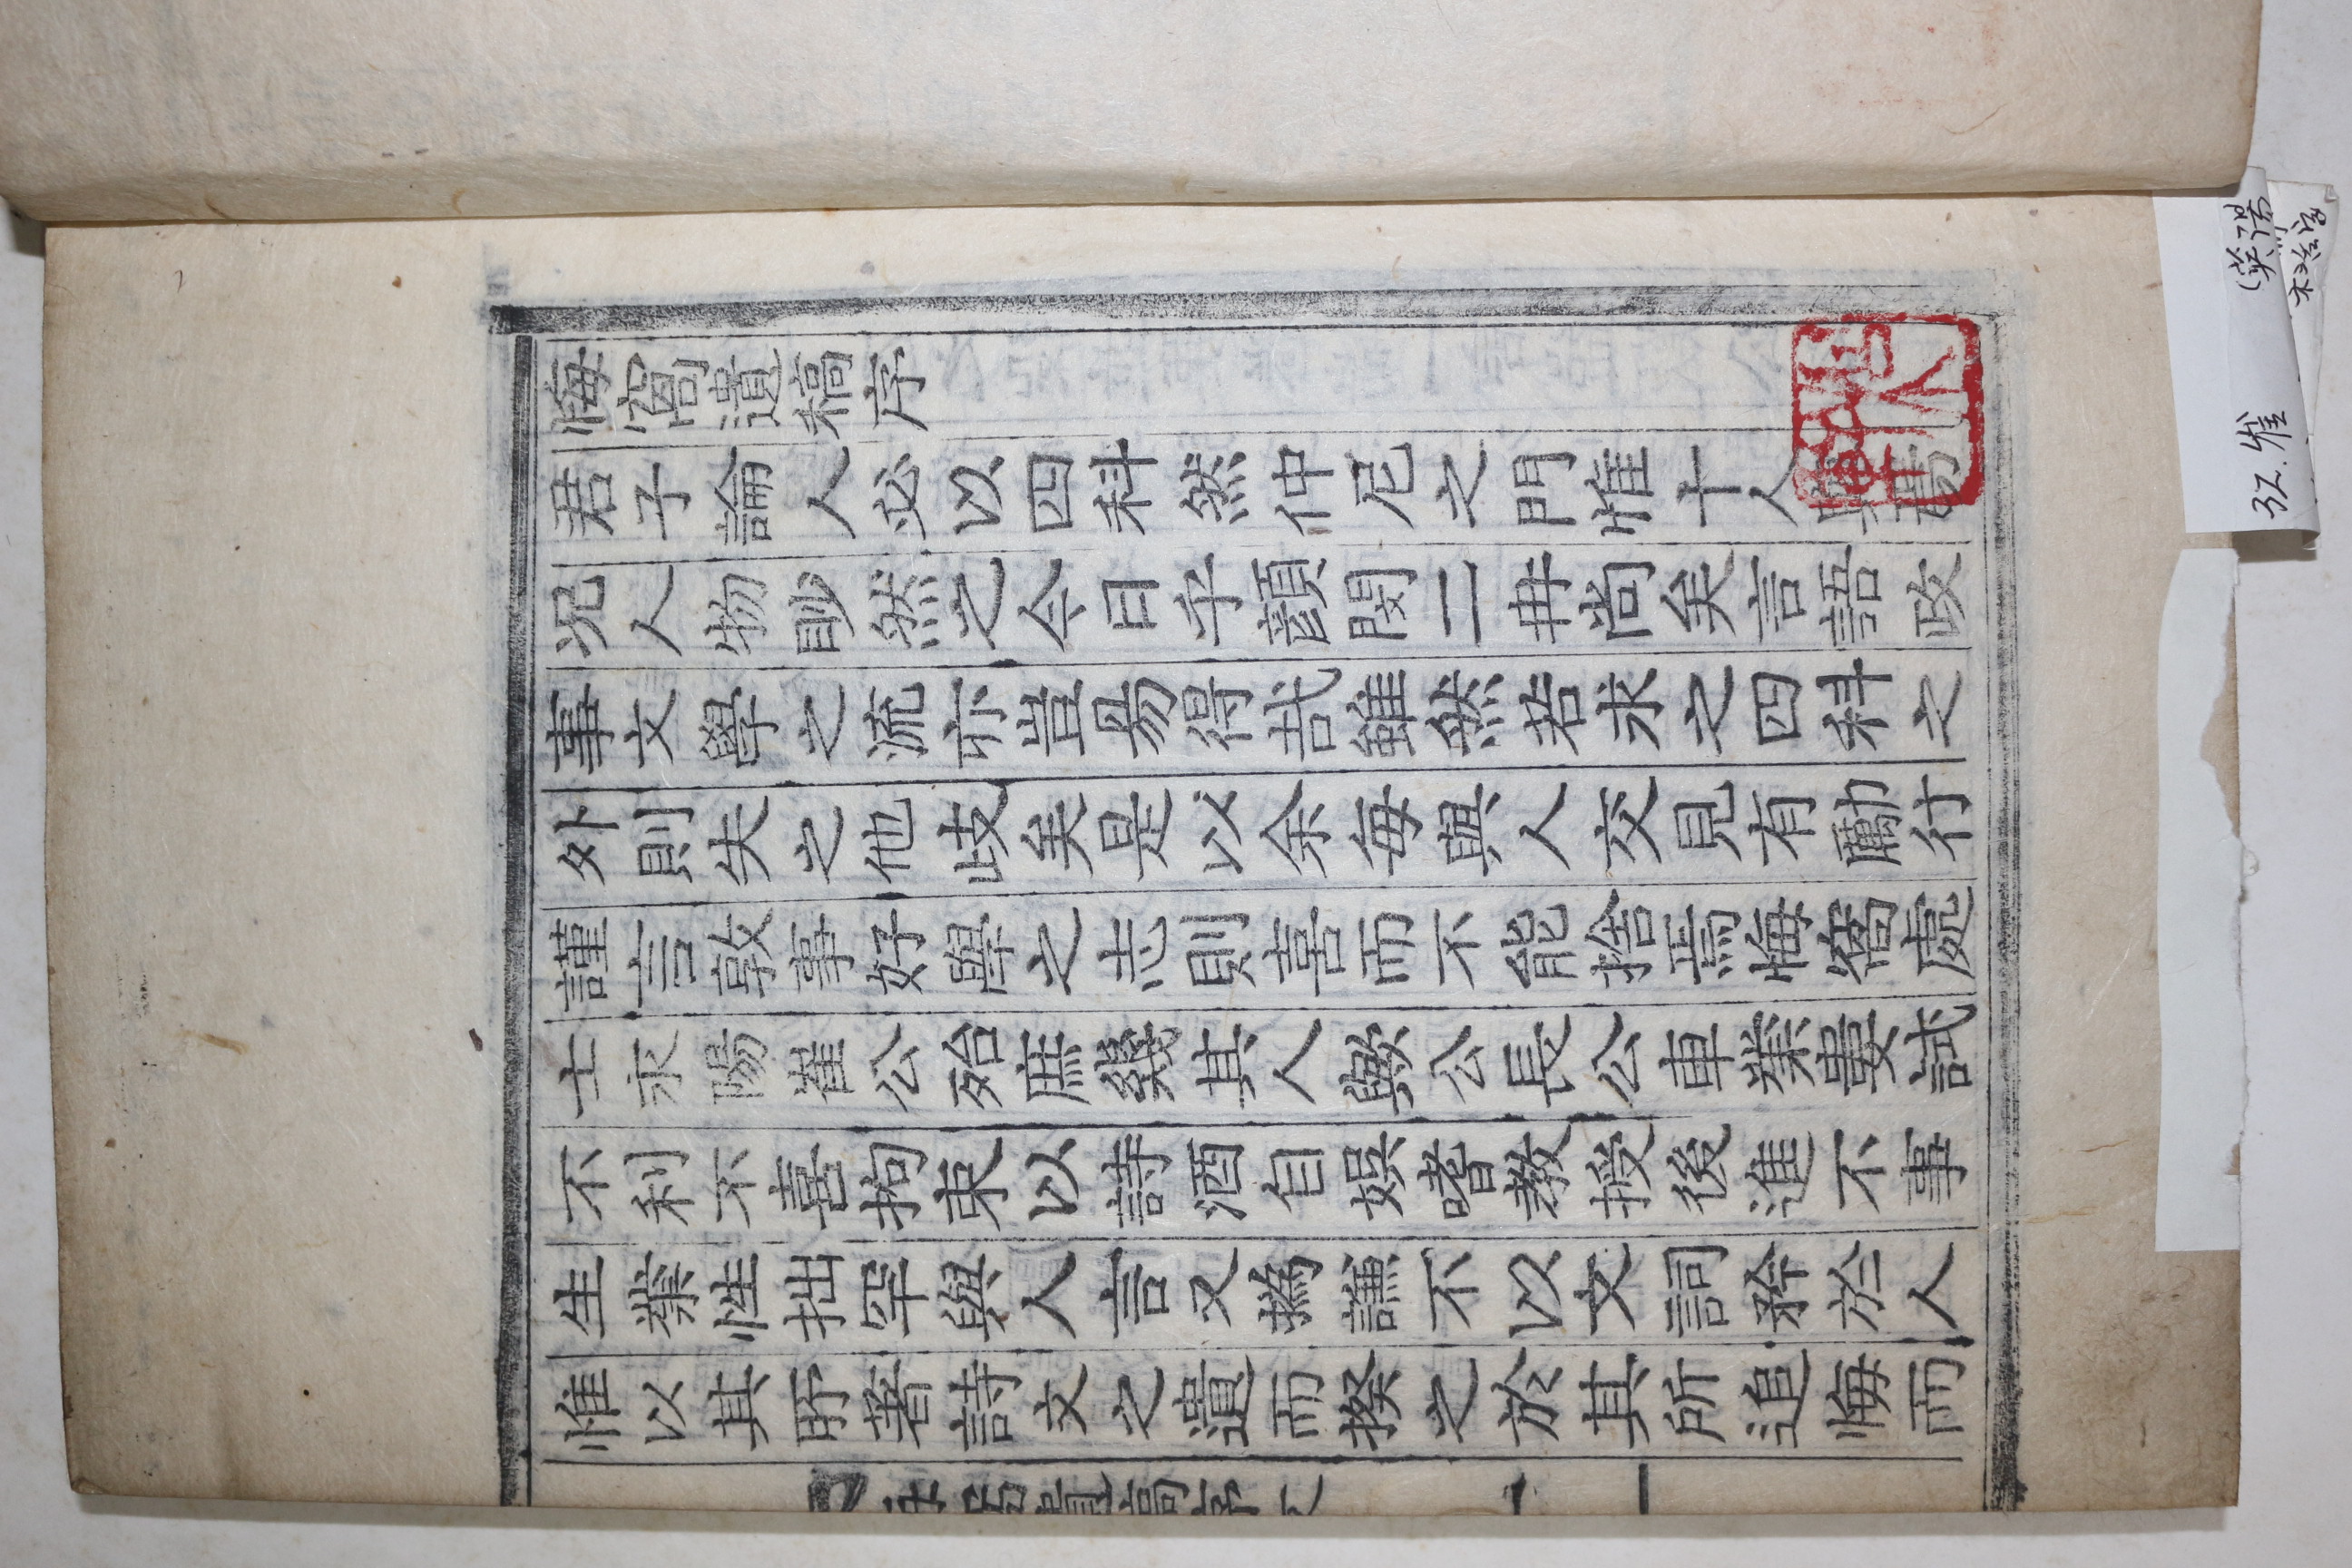 悔窩遺稿序
君子論人必以四科然仲尼之門惟十人與焉
况人物眇然之今日乎顔閔二冉尚矣言語政
事文學之流亦豈易得哉雖然若求之四科之
外則失之他歧矣是以余每與人交見有勵行
謹言敦事好學之志則喜而不能捨焉悔窩處
士永陽崔公殆庶幾其人歟公長公車業婁試
不利不喜拘束以詩酒自娛嗜教授後進不事
生業性拙罕與人言又撝謙不以文詞矜於人
惟以其所著詩文之遺而揆之於其所追悔而
悔窩遺稿序文
一
32. 崔
(英陽
木活字